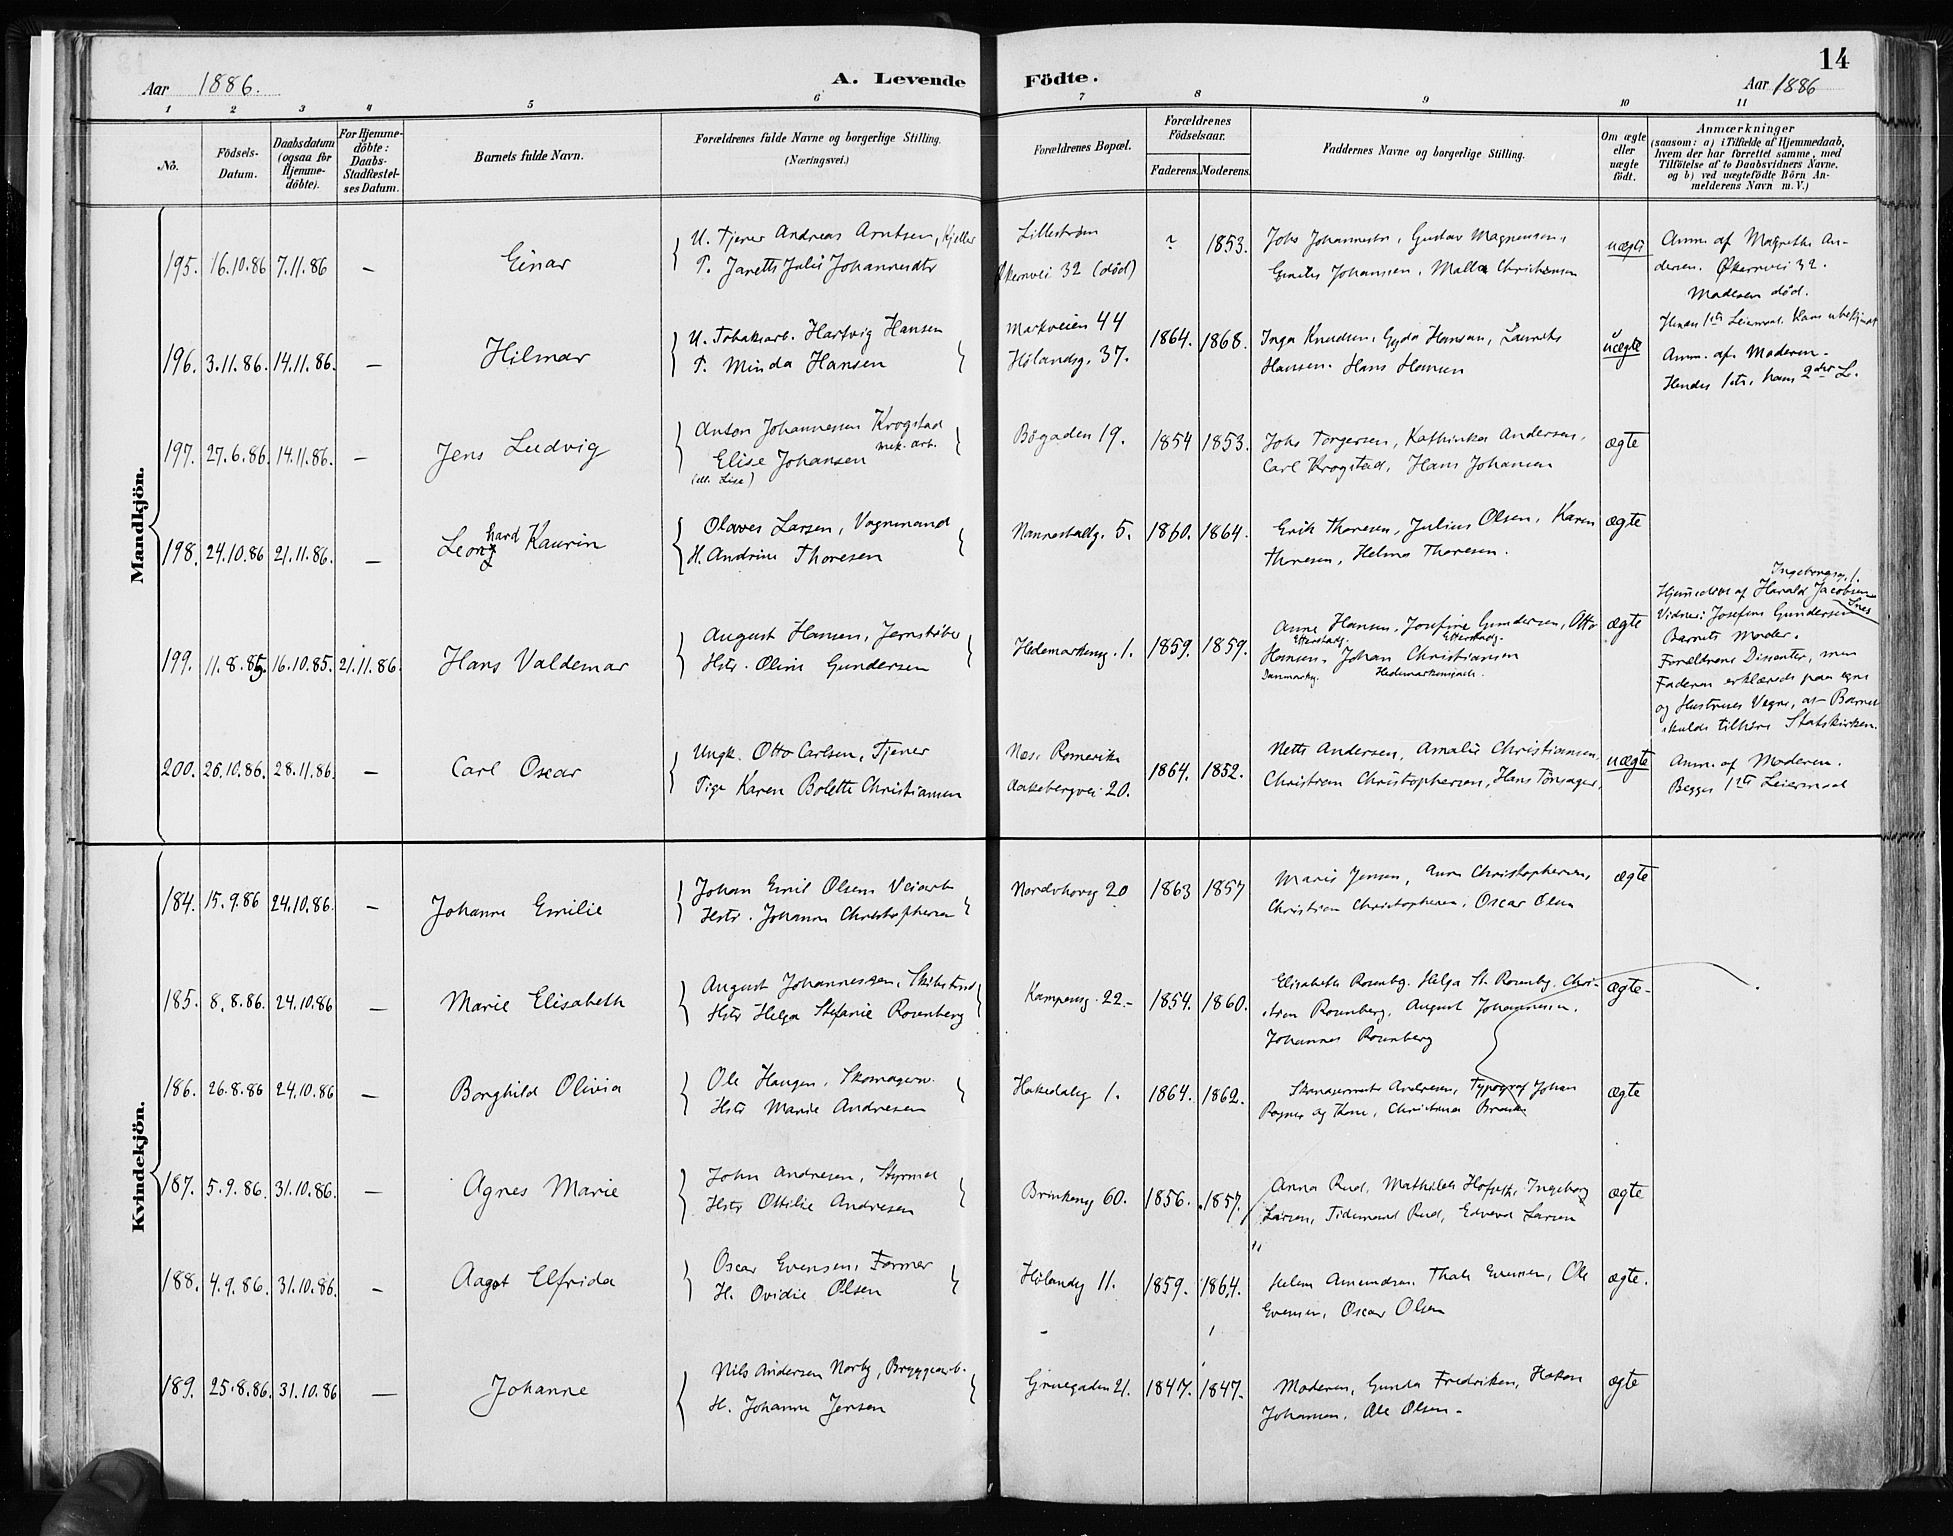 14
Aar 1886.
A. Levende Födte.
Aar 1886
1 2 3 4 5 6 7 8 9 10 11
No.
Födsels-
Datum.
Daabsdatum
(ogsaa for
Hjemme-
döbte).
For Hjemme-
döbte:
Daabs-
Stadfæstel-
ses Datum.
Barnets fulde Navn.
Forældrenes fulde Navne og borgerlige Stilling.
(Næringsvei.)
Forældrenes Bopæl.
Forældrenes
Födselsaar.
Faderens. Moderens.
Faddernes Navne og borgerlige Stilling.
Om ægte
eller
uægte
födt.
Anmærkninger
(saasom: a) i Tilfælde af Hjemmedaab,
hvem der har forrettet samme, med
Tilföielse af to Daabsvidners Navne.
og b) ved uægtefödte Börn An-
melderens Navn m. V.)
Mandkjön.
195. 16.10.86 7.11.86 — Einar
U. Tjener Andreas Arntsen, Kjeller
P. Janette Julie Johannesdtr
Lilleström
Økernvei 32 (död)
? 1853.
Johs Johannesen, Gustav Magnussen,
Emilie Johansen, Malla Christensen
uægte
Anm. af Magrethe An-
dersen. Økernvei 32.
Moderen död.
196. 3.11.86. 14.11.86. — Hilmar
U. Tobaksarb. Hartvig Hansen
P. Minda Hansen
Markveien 44
Hölandsg. 37.
1864. 1868.
Inga Knudsen, Gyda Hansen, Lauritz
Hansen. Hans Hansen
uægte
Hendes 1ste Leiermaal. Hans ubekjendt
Anm. af Moderen.
Hendes 1ste, hans 2det L.
197. 27.6.86. 14.11.86. — Jens Ludvig
Anton Johannesen Krogstad
mek. arb.
Elise Johansen
(ell. Lise)
Bögaden 19. 1854 1853.
Johs Torgersen, Kathinka Andersen,
Carl Krogstad, Hans Johansen
ægte
198. 24.10.86 21.11.86. — Leonhard Kaurin
Olaves Larsen, Vognmand
H. Andrine Thoresen
Nannestadg. 5. 1860. 1864.
Erik Thoresen, Julius Olsen, Karen
Thoresen, Helma Thoresen.
ægte
199. 11.8.85. 16.10.85. 21.11.86. Hans Valdemar
August Hansen, Jernstöber
Hstr. Olivia Gundersen
Hedemarkeng. 1. 1859. 1859.
Anne Hansen, Josefine Gundersen, Otto
Etterstadg. Etterstadg.
Hansen, Johan Christiansen
Danmarksg. Hedemarkensgade.
ægte
Ingeborgsg. 1.
Hjemmedöbt af Harald Jacobsen
Vidner: Josefine Gundersen
Barnets Moder.
Forældrene Dissenter, men
Faderen erklærede paa egne
og Hustrues Vegne, at Barnet
skulde tilhöre Statskirken.
200. 26.10.86. 28.11.86. — Carl Oscar
Ungk. Otto Carlsen, Tjener
Pige Karen Bolette Christiansen
Nes. Romerike
Aakebergvei 20.
1864. 1852.
Netta Andersen, Amalie Christiansen,
Christian Christophersen, Hans Tönsager,
uægte
Anm. af Moderen.
Begges 1ste Leiermaal
Kvindekjön.
184. 15.9.86 24.10.86. — Johanne Emilie
Johan Emil Olsen Veiarb
Hstr. Johanne Christophersen
Nordrhovg 20 1863 1857
Marie Jensen, Anne Christophersen,
Christian Christophersen, Oscar Olsen
ægte
185. 8.8.86. 24.10.86 — Marie Elisabeth
August Johannessen, Skibstmd
Hstr Helga Stefanie Rosenberg
Kampeng. 22. 1854. 1860.
Elisabeth Rosenbg. Helga St. Rosenbg. Chri-
stian Rosenberg, August Johannessen.
Johannes Rosenberg
ægte
186. 26.8.86 24.10.86 — Borghild Olivia
Ole Haugen, Skomagersv.
Hstr Marie Andresen
Hakedalsg 1. 1864. 1862.
Skomagermester Andresen, Typograf Johan
og Kone, Christine
ægte
187. 5.9.86. 31.10.86. — Agnes Marie
John Andresen, Styrmd
Hstr Ottilie Andresen
Brinkeng 60. 1856. 1857.
Anna Rud, Mathilde Hofseth, Ingeborg
Larsen, Tidemand Rud, Edvard Larsen
ægte
188. 4.9.86. 31.10.86. — Aagot Elfrida
Oscar Evensen, Former
H. Ovidie Olsen
Hölandsg 11. 1859. 1864.
Helene Amundsen, Thale Evensen, Ole
Evensen, Oscar Olsen
ægte.
189. 25.8.86. 31.10.86 — Johanne
Nils Andersen Norby, Bryggearb.
H. Johanne Jensen
Gruegaden 21. 1847. 1847.
Moderen, Gunda Fredriksen, Hakon
Johansen, Ole Olsen.
ægte